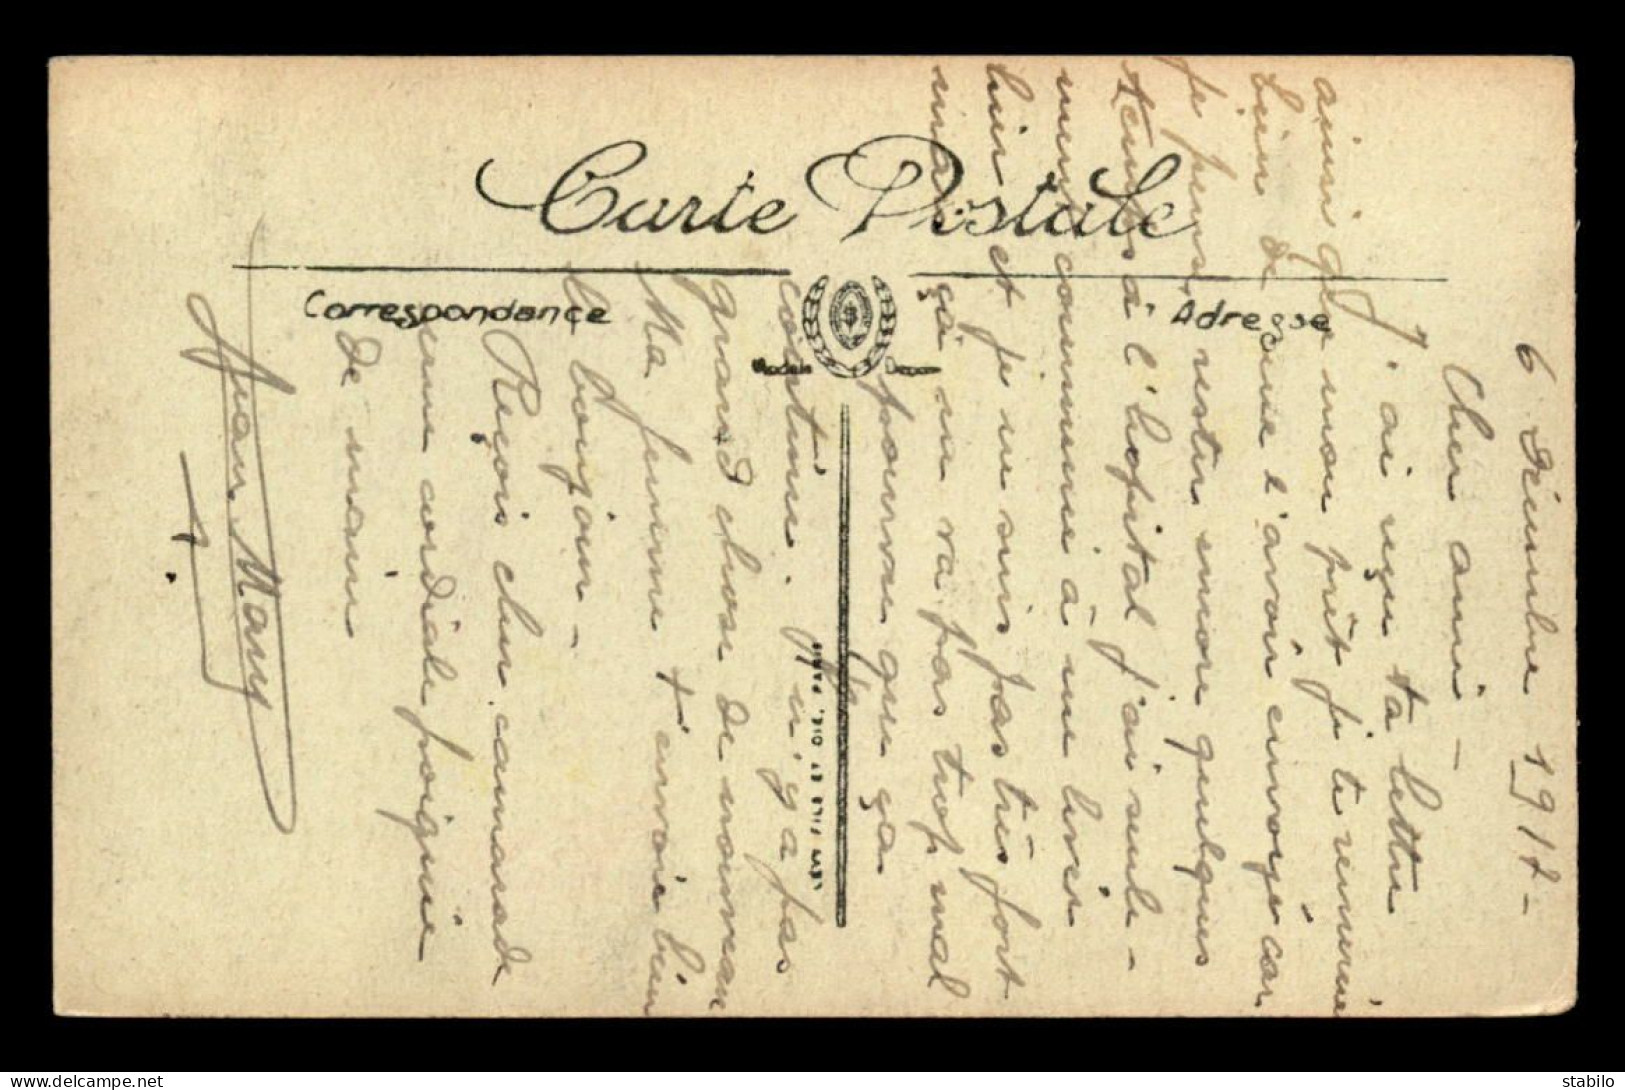 Carte Postale
Correspondance
Adresse
6 Décembre 1917 -
Cher ami -
J'ai reçu ta lettre
ainsi que mon prêt je te remercie
bien de me l'avoir envoyé car
je pense rester encore quelques
temps à l'hopital j'ai seule-
ment commencé à me lever
hier et je ne suis pas très fort
mais ça ne va pas trop mal
pourvu que ça
continue. Il n'y a pas
grand chose de nouveau
Ma femme t'envoie bien
le bonjour -
Reçois cher camarade
une cordiale poignée
de main
Jean Mary
stabilo